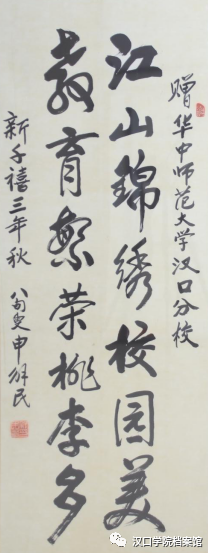 赠华中师范大学汉口分校
江山锦绣校园美
教育繁荣桃李多
新千禧三年秋
八旬叟申解民
汉口学院档案馆